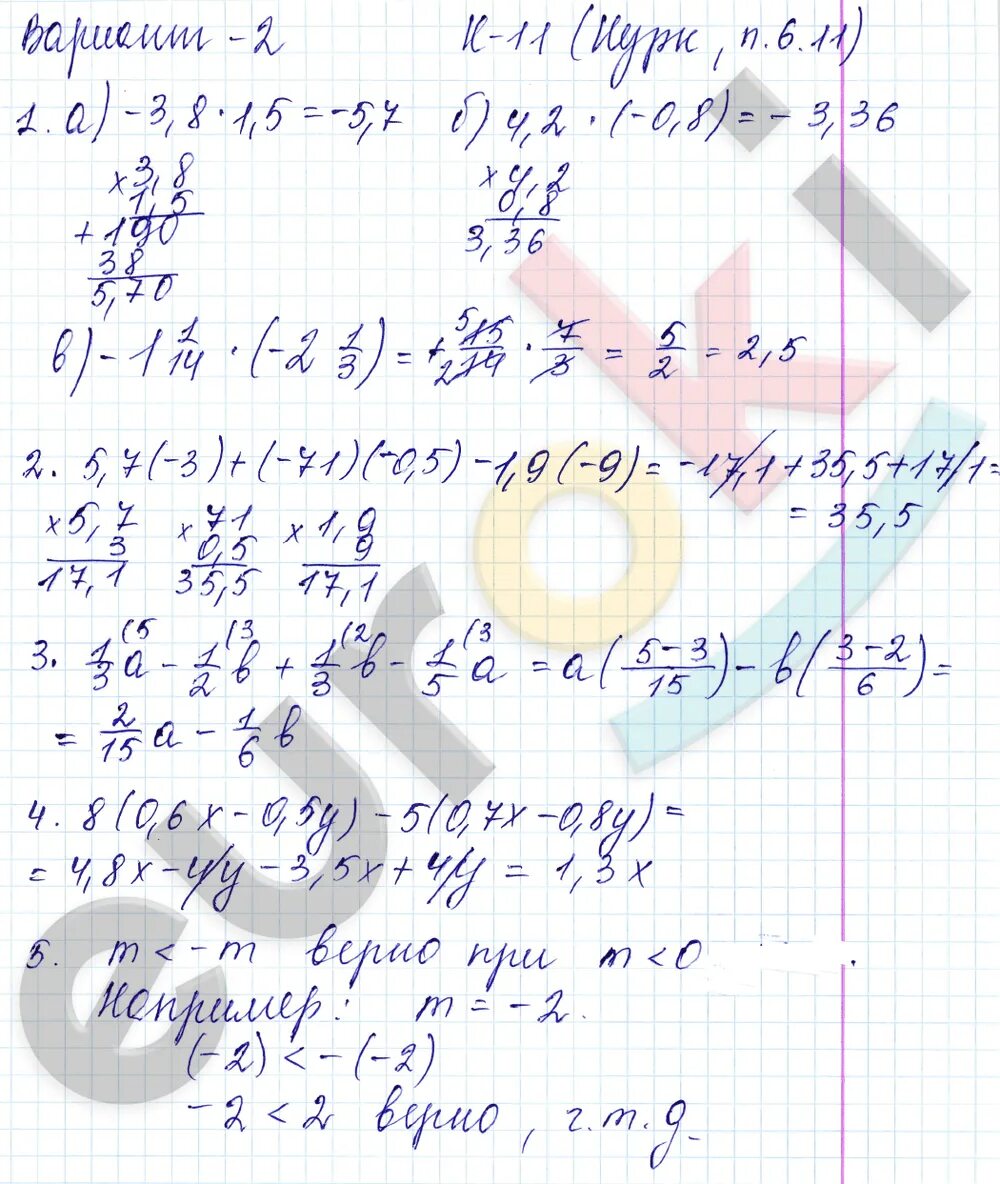 Вариант - 2 К-11 (Нурк, п.6.11)
1. а) -3,8 · 1,5 = -5,7 б) 4,2 · (-0,8) = - 3,36
× 3,8 × 4,2
1,5 0,8
+ 190 3,36
38
5,70
в) - 1 1/14 · (-2 1/3) = + 15/14 · 7/3 = 5/2 = 2,5
5 2
2. 5,7(-3) + (-71)(-0,5) - 1,9(-9) = -17,1 + 35,5 + 17,1 =
= 35,5
× 5,7 × 71 × 1,9
3 0,5 9
17,1 35,5 17,1
(5 (3 (2 (3
3. 1/3 a - 1/2 в + 1/3 в - 1/5 a = a( 5-3/15 ) - в( 3-2/6 ) =
= 2/15 a - 1/6 в
4. 8(0,6x - 0,5y) - 5(0,7x - 0,8y) =
= 4,8x - 4y - 3,5x + 4y = 1,3x
5. m < -m верно при m < 0 .
Например: m = -2.
(-2) < -(-2)
-2 < 2 верно, ч.т.д.
euroki